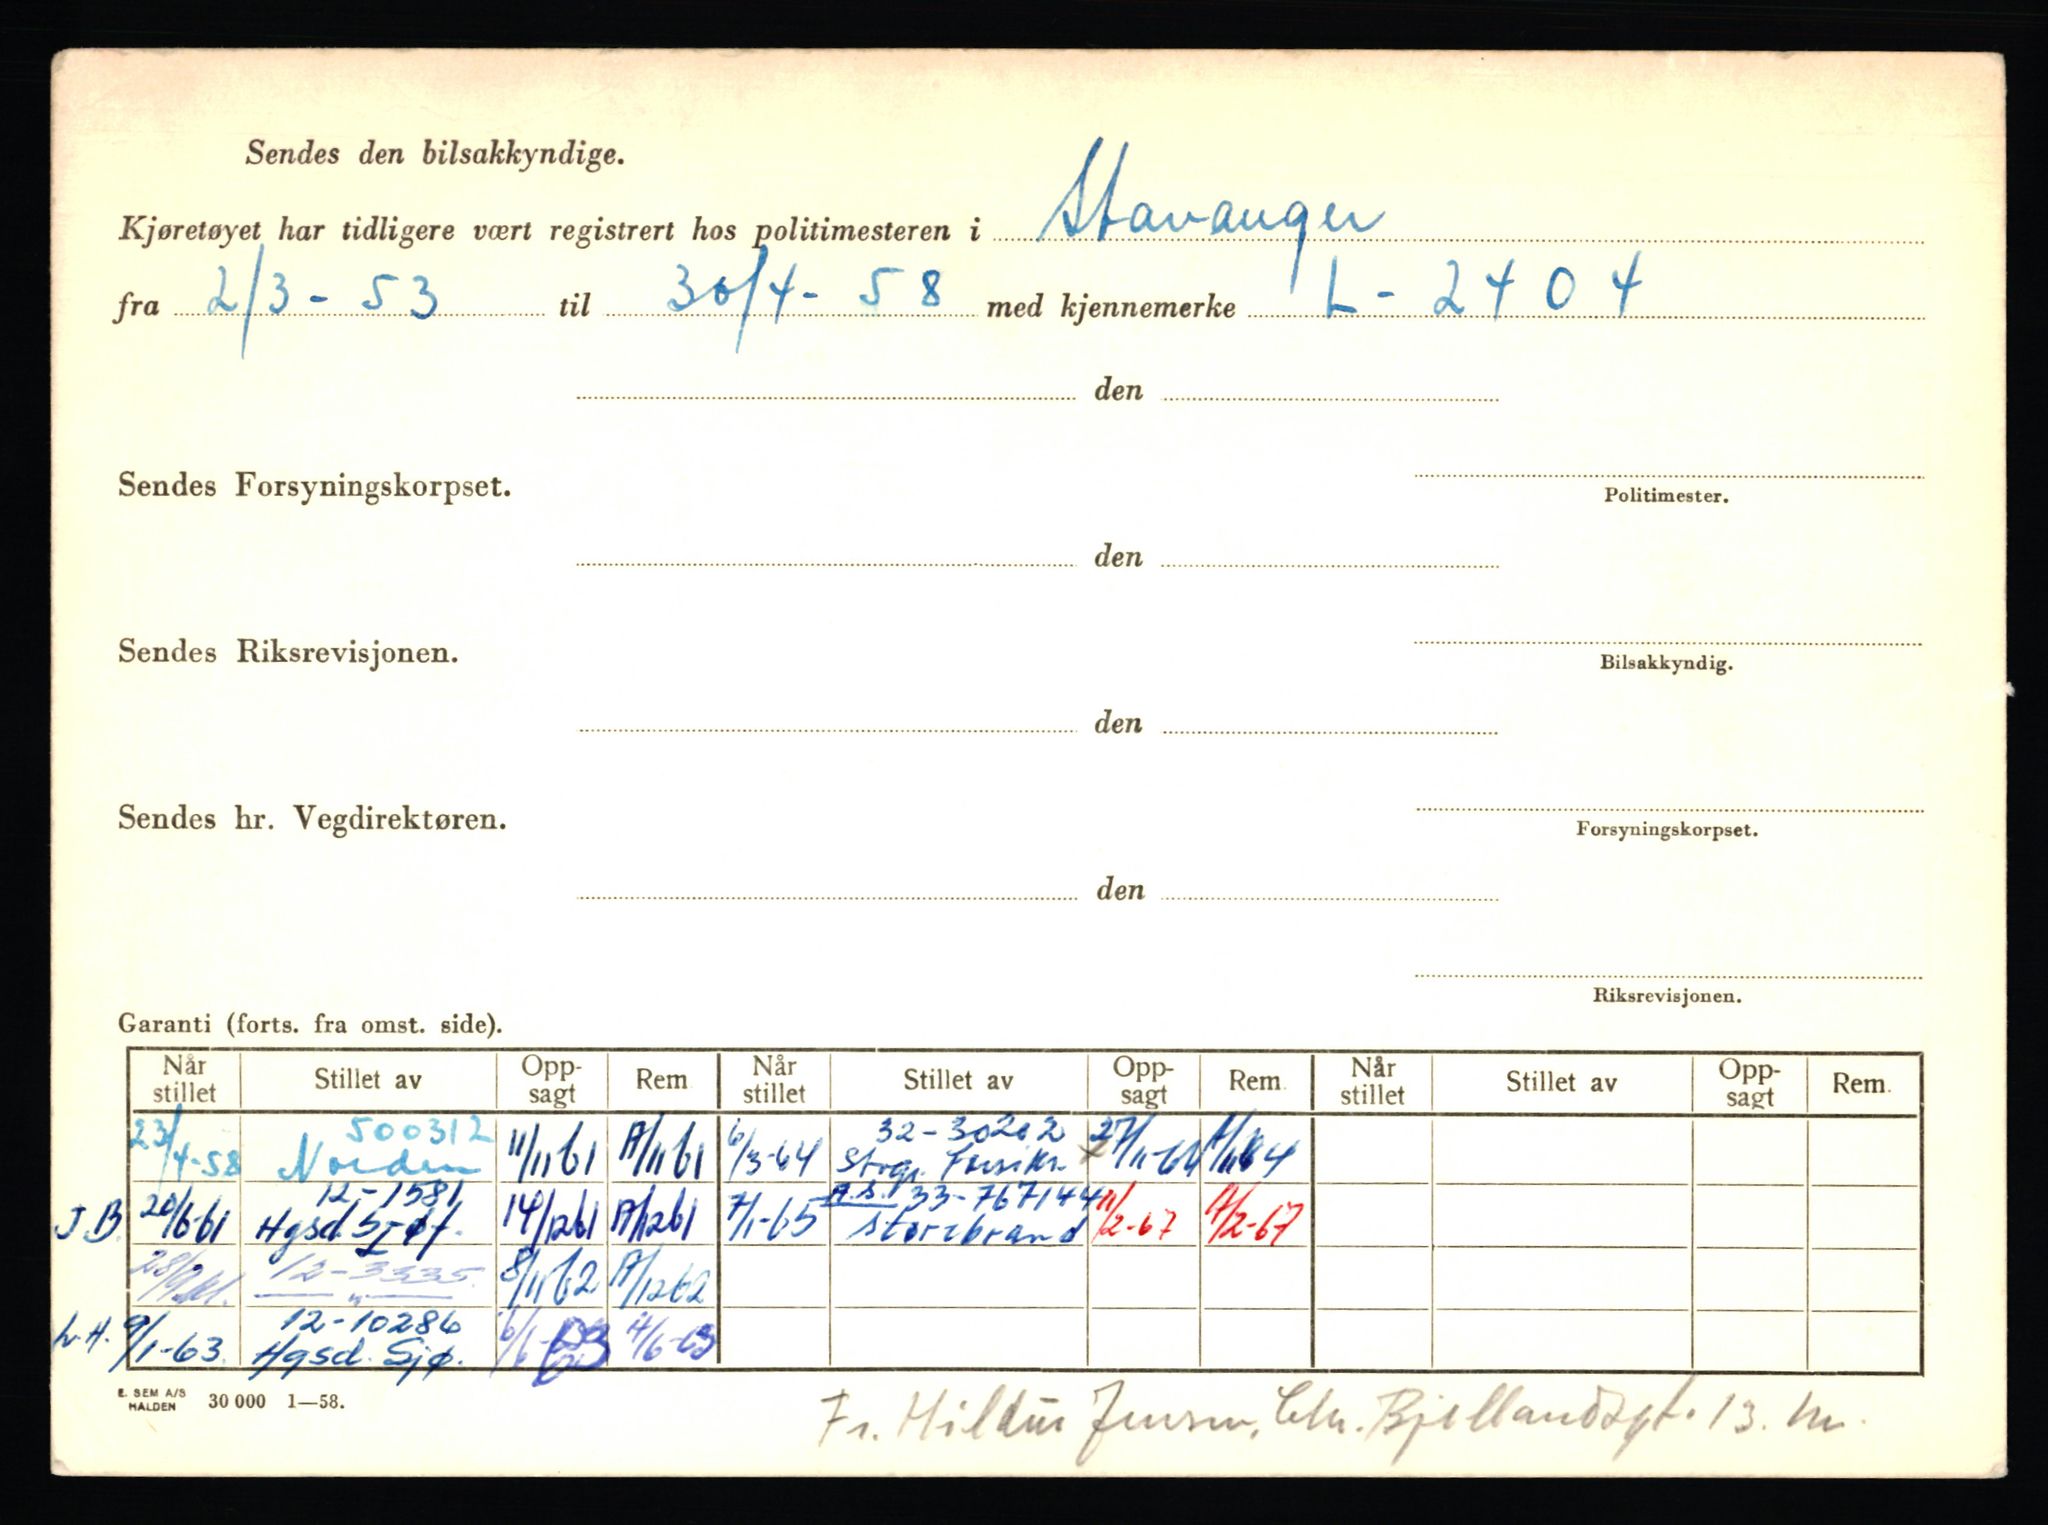 Sendes den bilsakkyndige.
Kjøretøyet har tidligere vært registrert hos politimesteren i Stavanger
fra 2/3 - 53 til 30/4 - 58 med kjennemerke L - 2404
den
Sendes Forsyningskorpset.
Politimester.
den
Sendes Riksrevisjonen.
Bilsakkyndig.
den
Sendes hr. Vegdirektøren.
Forsyningskorpset.
den
Riksrevisjonen.
Garanti (forts. fra omst. side).
Når stillet Stillet av Opp-sagt Rem. Når stillet Stillet av Opp-sagt Rem. Når stillet Stillet av Opp-sagt Rem.
23/4-58 500312 Norden 11/11 61 A/11 61 6/3-64 32-30202 Stvgr. Forsikr. 27/11-64 A/11 64
J.B. 20/6-61 12-1581 Hgsd. 14/12 61 A/12 61 7/1-65 A.S. 33-767144 Storebrand 11/2-67 A/2-67
12-3335 " 8/11 62 A/12 62
L.H. 9/1-63. 12-10286 Hgsd. Sjø. 6/6-63 A/6-63
E. SEM A/S HALDEN 30 000 1—58.
Fr. Hildur Jensen, Chr. Bjellandsgt. 13.